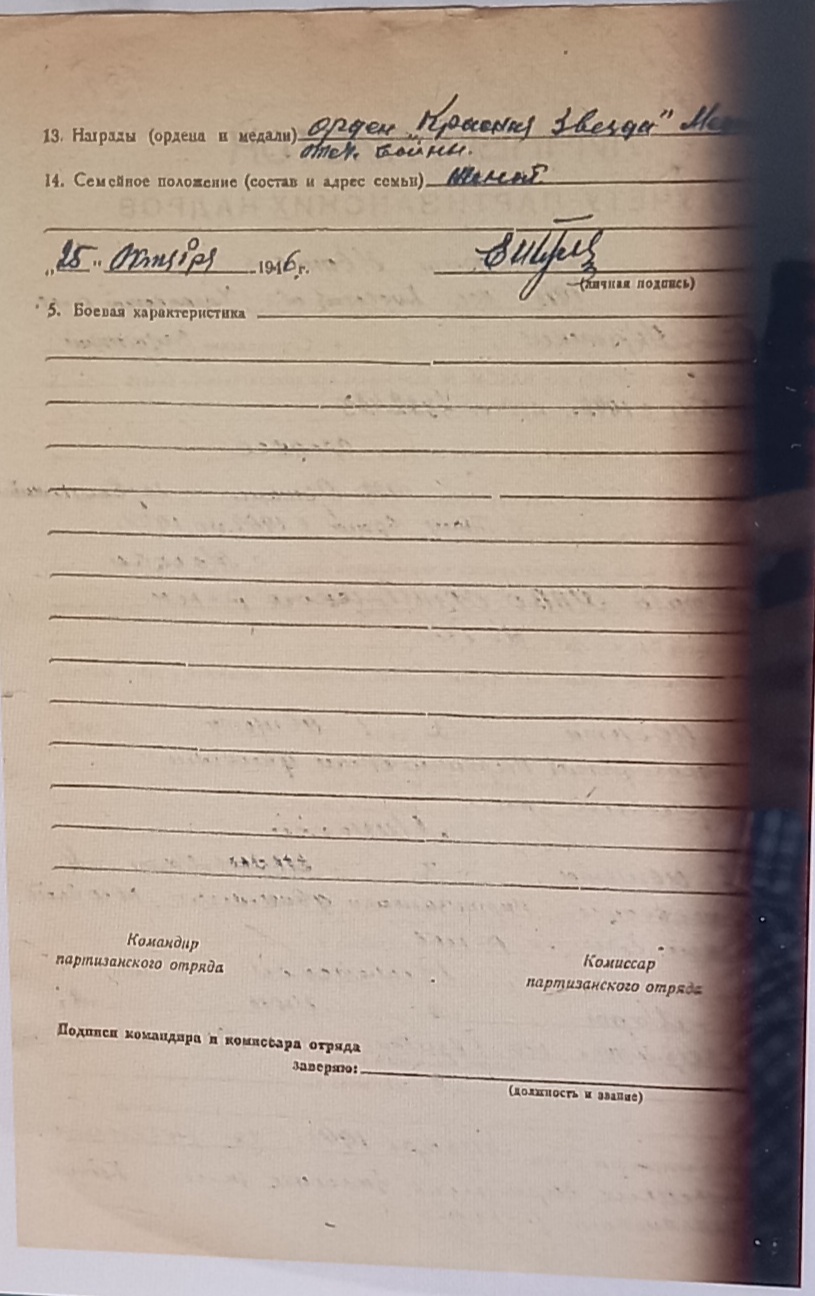 13. Награды (ордена и медали) орден „Красная Звезда"
отеч. войны.
14. Семейное положение (состав и адрес семьи) женат.
„25" Октября 1946 г.
(личная подпись)
5. Боевая характеристика
Командир
партизанского отряда
Комиссар
партизанского отряда
Подписи командира и комиссара отряда
заверяю:
(должность и звание)